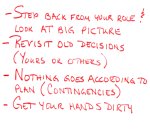 - STEP BACK FROM YOUR ROLE &
LOOK AT BIG PICTURE
- REVISIT OLD DECISIONS
(YOURS OR OTHERS)
- NOTHING GOES ACCORDING TO
PLAN (CONTINGENCIES)
- GET YOUR HANDS DIRTY